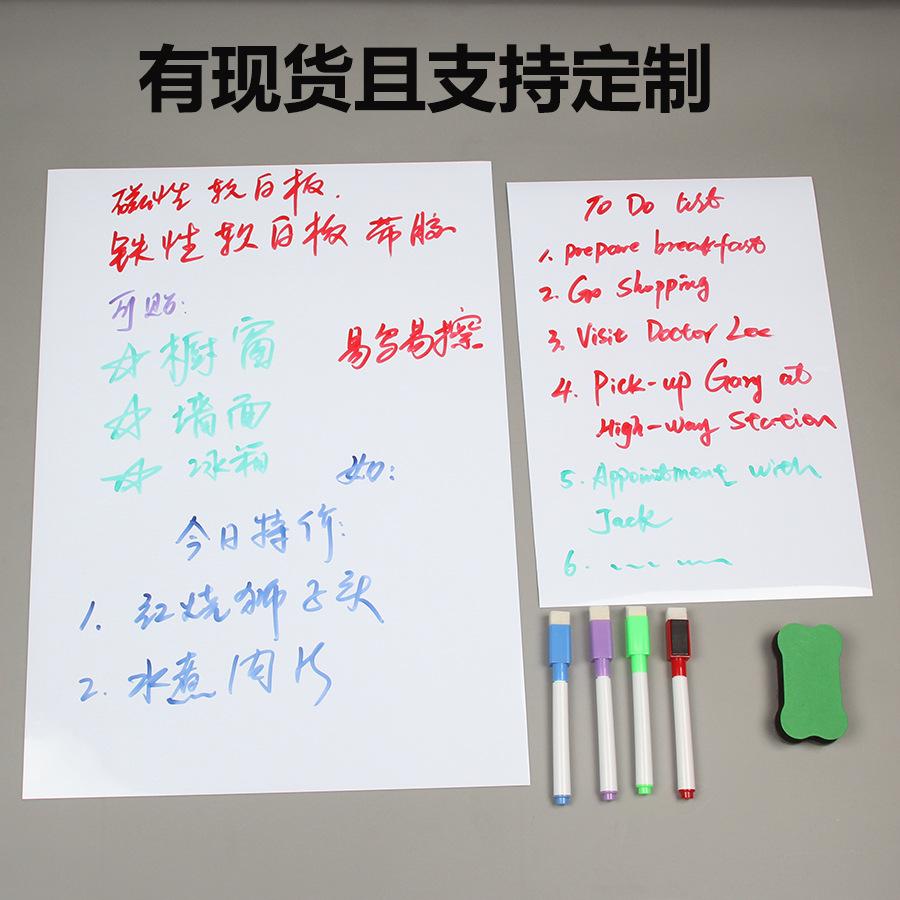 有现货且支持定制
磁性软白板.
铁性软白板 带胶
可贴:
☆ 橱窗
易写易擦
☆ 墙面
☆ 冰箱
如:
今日特价:
1. 红烧狮子头
2. 水煮肉片
To Do List
1. prepare breakfast
2. Go Shopping
3. Visit Doctor Lee
4. Pick-up Gary at
High-way Station
5. Appointment with
Jack
6. ... ...